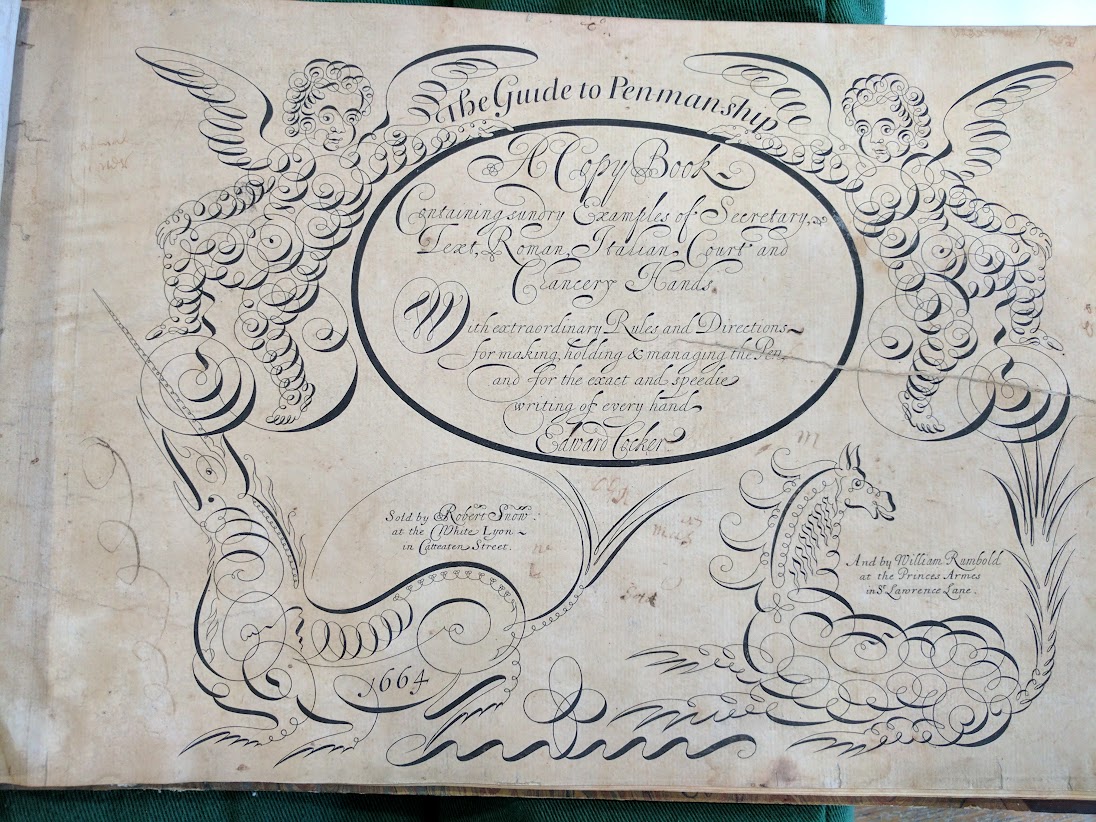 The Guide to Penmanship
A Copy Book
Containing sundry Examples of Secretary,
Text, Roman, Italian, Court and
Chancery Hands.
With extraordinary Rules and Directions
for making, holding & managing the Pen.
and for the exact and speedie
writing of every hand
Edward Cocker
Sold by Robert Snow.
at the White Lyon
in Catteaten Street.
And by William Rumbold
at the Princes Armes
in St Lawrence Lane.
1664